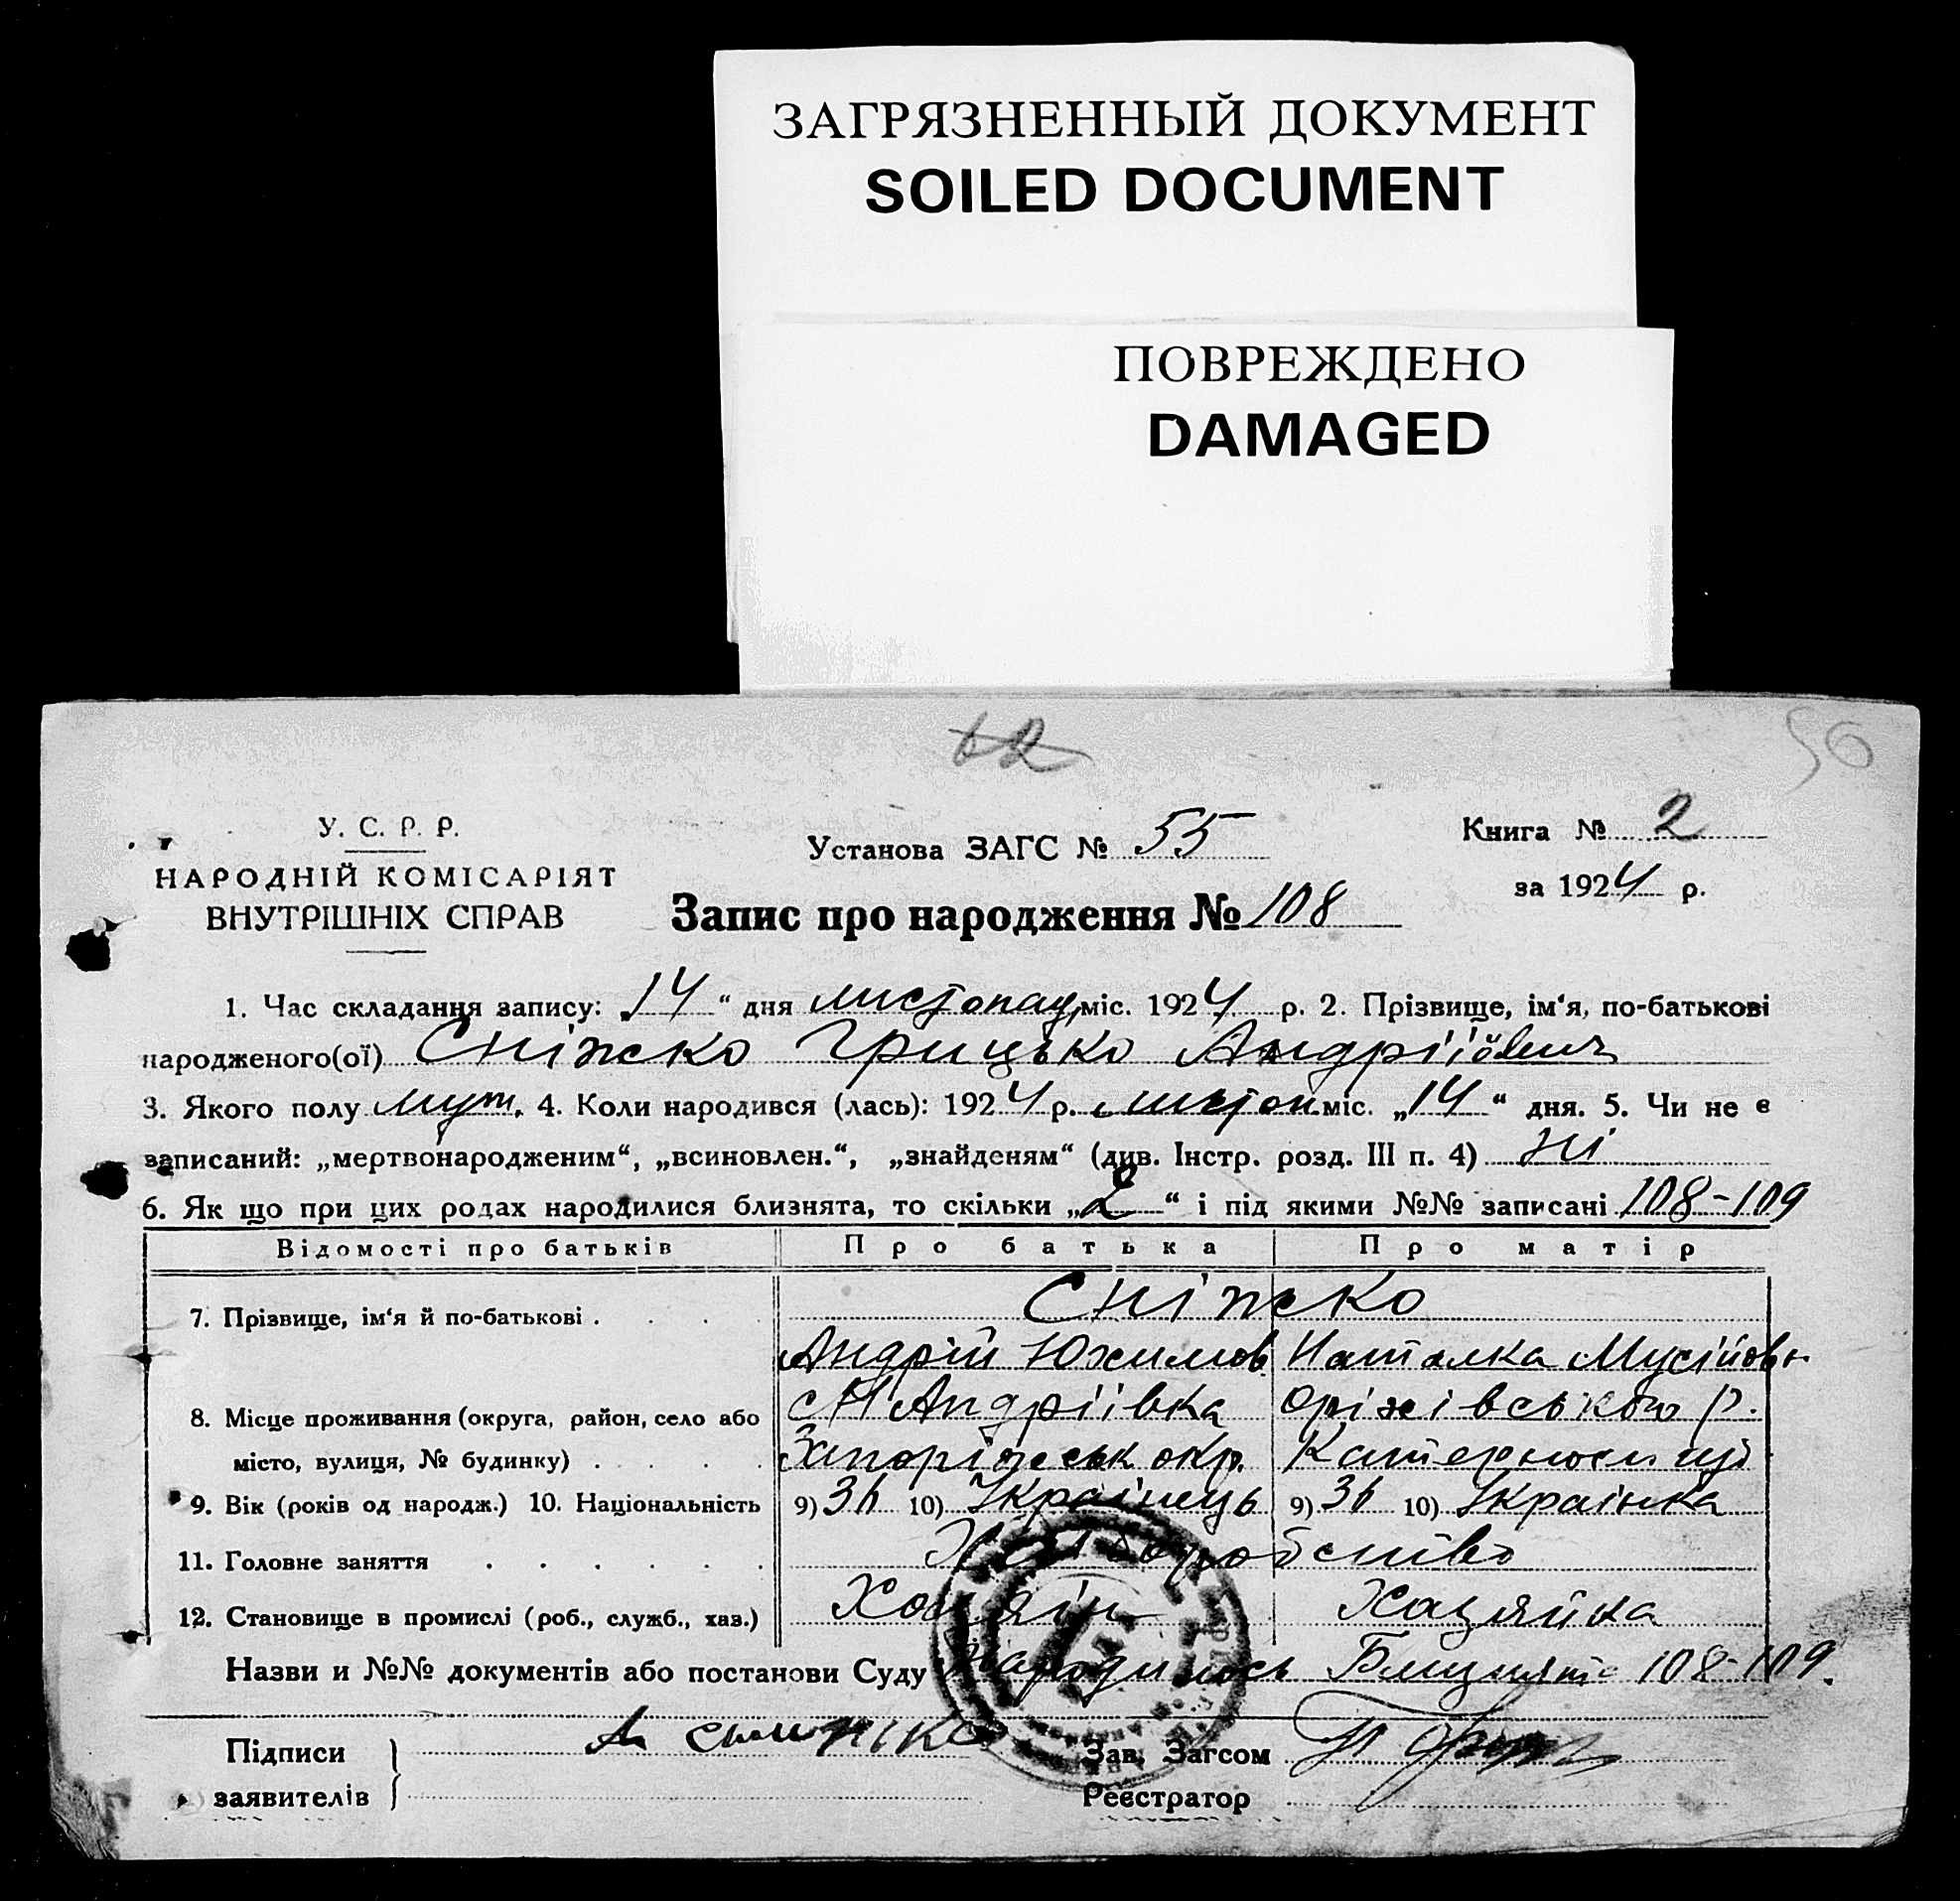 ЗАГРЯЗНЕННЫЙ ДОКУМЕНТ
SOILED DOCUMENT
ПОВРЕЖДЕНО
DAMAGED
56
У. С. Р. Р.
НАРОДНІЙ КОМІСАРІЯТ
ВНУТРІШНІХ СПРАВ
Установа ЗАГС № 55
Книга № 2
за 1924 р.
Запис про народження № 108
1. Час складання запису: „14“ дня листопад міс. 1924 р. 2. Прізвище, ім‘я, по-батькові
народженого(ої) Сніжко Грицько Андрійович
3. Якого полу муж. 4. Коли народився (лась): 1924 р. листоп. міс. „14“ дня. 5. Чи не є
записаний: „мертвонародженим“, „всиновлен.“, „знайденям“ (див. Інстр. розд. III п. 4) Ні
6. Як що при цих родах народилися близнята, то скільки „2“ і під якими №№ записані 108-109
Відомості про батьків Про батька Про матір
7. Прізвище, ім‘я й по-батькові . . . . Сніжко
Андрій Юхимов Наталка Мусійовн
8. Місце проживання (округа, район, село або с Н Андріївка Оріхівського р.
місто, вулиця, № будинку) . . . . Запоріжськ окр. Катеринosл
9. Вік (років од народж.) 10. Національність 9) 36 10) Українець 9) 36 10) Українка
11. Головне заняття . . . . . . Хліборобство
12. Становище в промислі (роб., служб., хаз.) Хазяїн Хазяйка
Назви и №№ документів або постанови Суду Народилось Близнята 108-109.
Підписи
заявителів
Зав. Загсом
Реєстратор